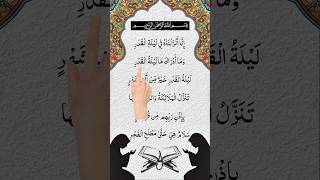 بِسْمِ اللهِ الرَّحْمٰنِ الرَّحِيْمِ
إِنَّا أَنْزَلْنَاهُ فِي لَيْلَةِ الْقَدْرِ
وَمَا أَدْرَاكَ مَا لَيْلَةُ الْقَدْرِ
لَيْلَةُ الْقَدْرِ خَيْرٌ مِنْ
تَنَزَّلُ الْمَلَائِكَةُ
بِإِذْنِ رَبِّهِمْ مِنْ
سَلَامٌ هِيَ حَتَّى مَطْلَعِ الْفَجْرِ
لَيْلَةُ
تَنَزَّلُ
بِإِذْنِ